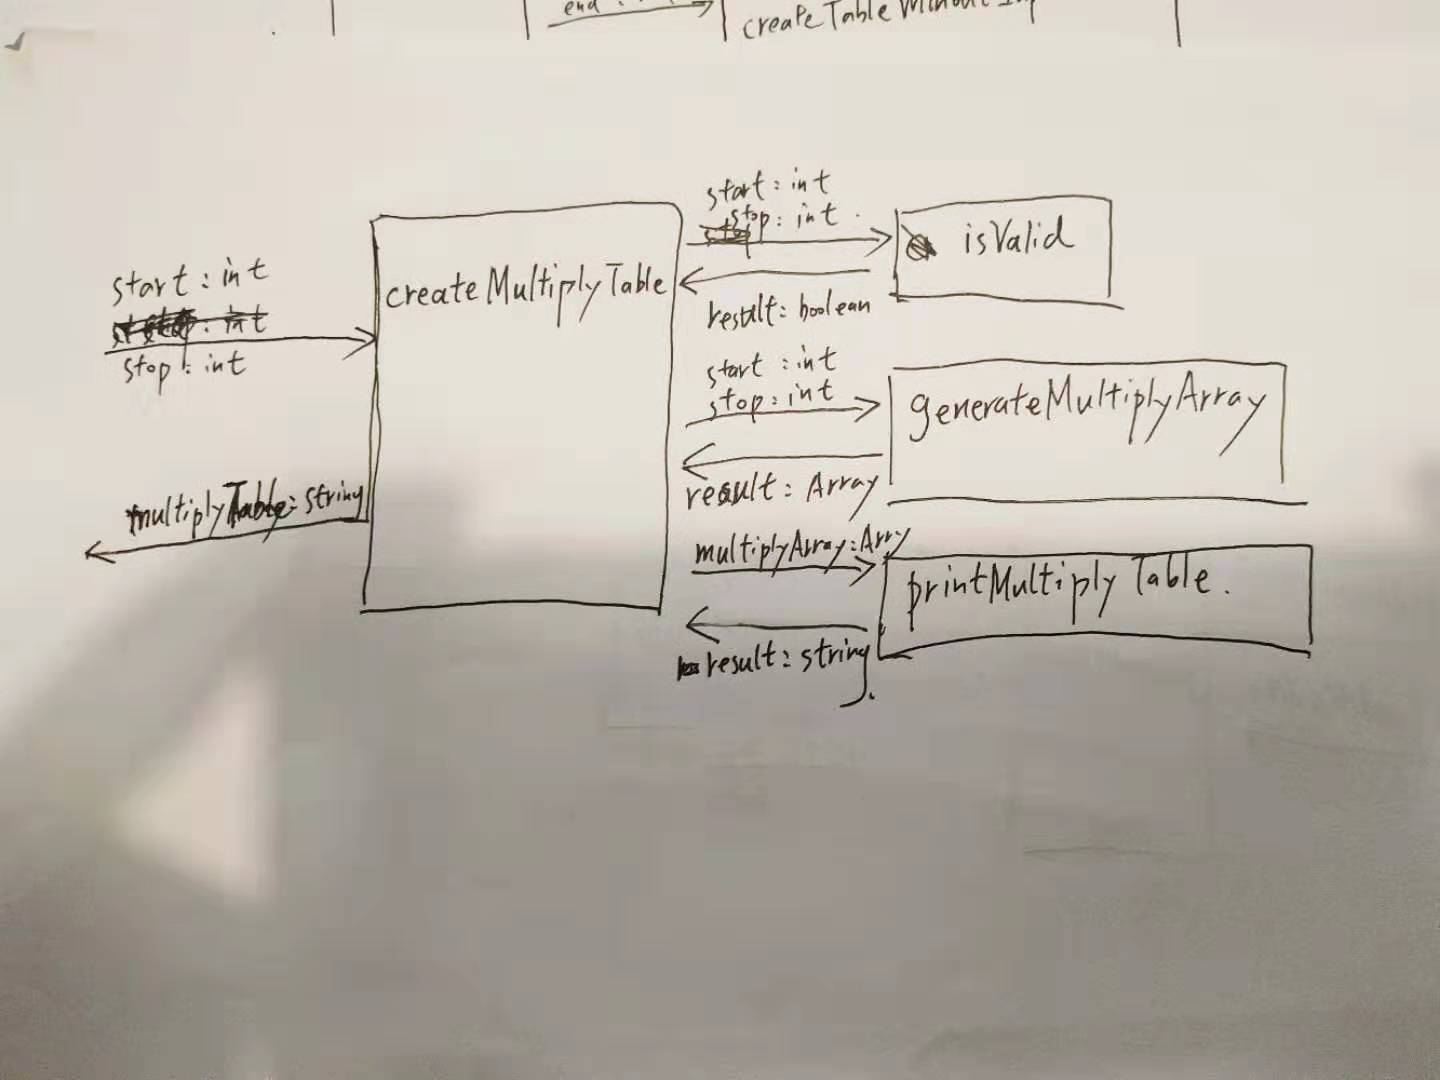 end :
createTable
start : int
stop : int
createMultiplyTable
multiplyTable : string
start : int
stop : int
isValid
result : boolean
start : int
stop : int
generateMultiplyArray
result : Array
multiplyArray : Arry
printMultiplyTable.
result : string